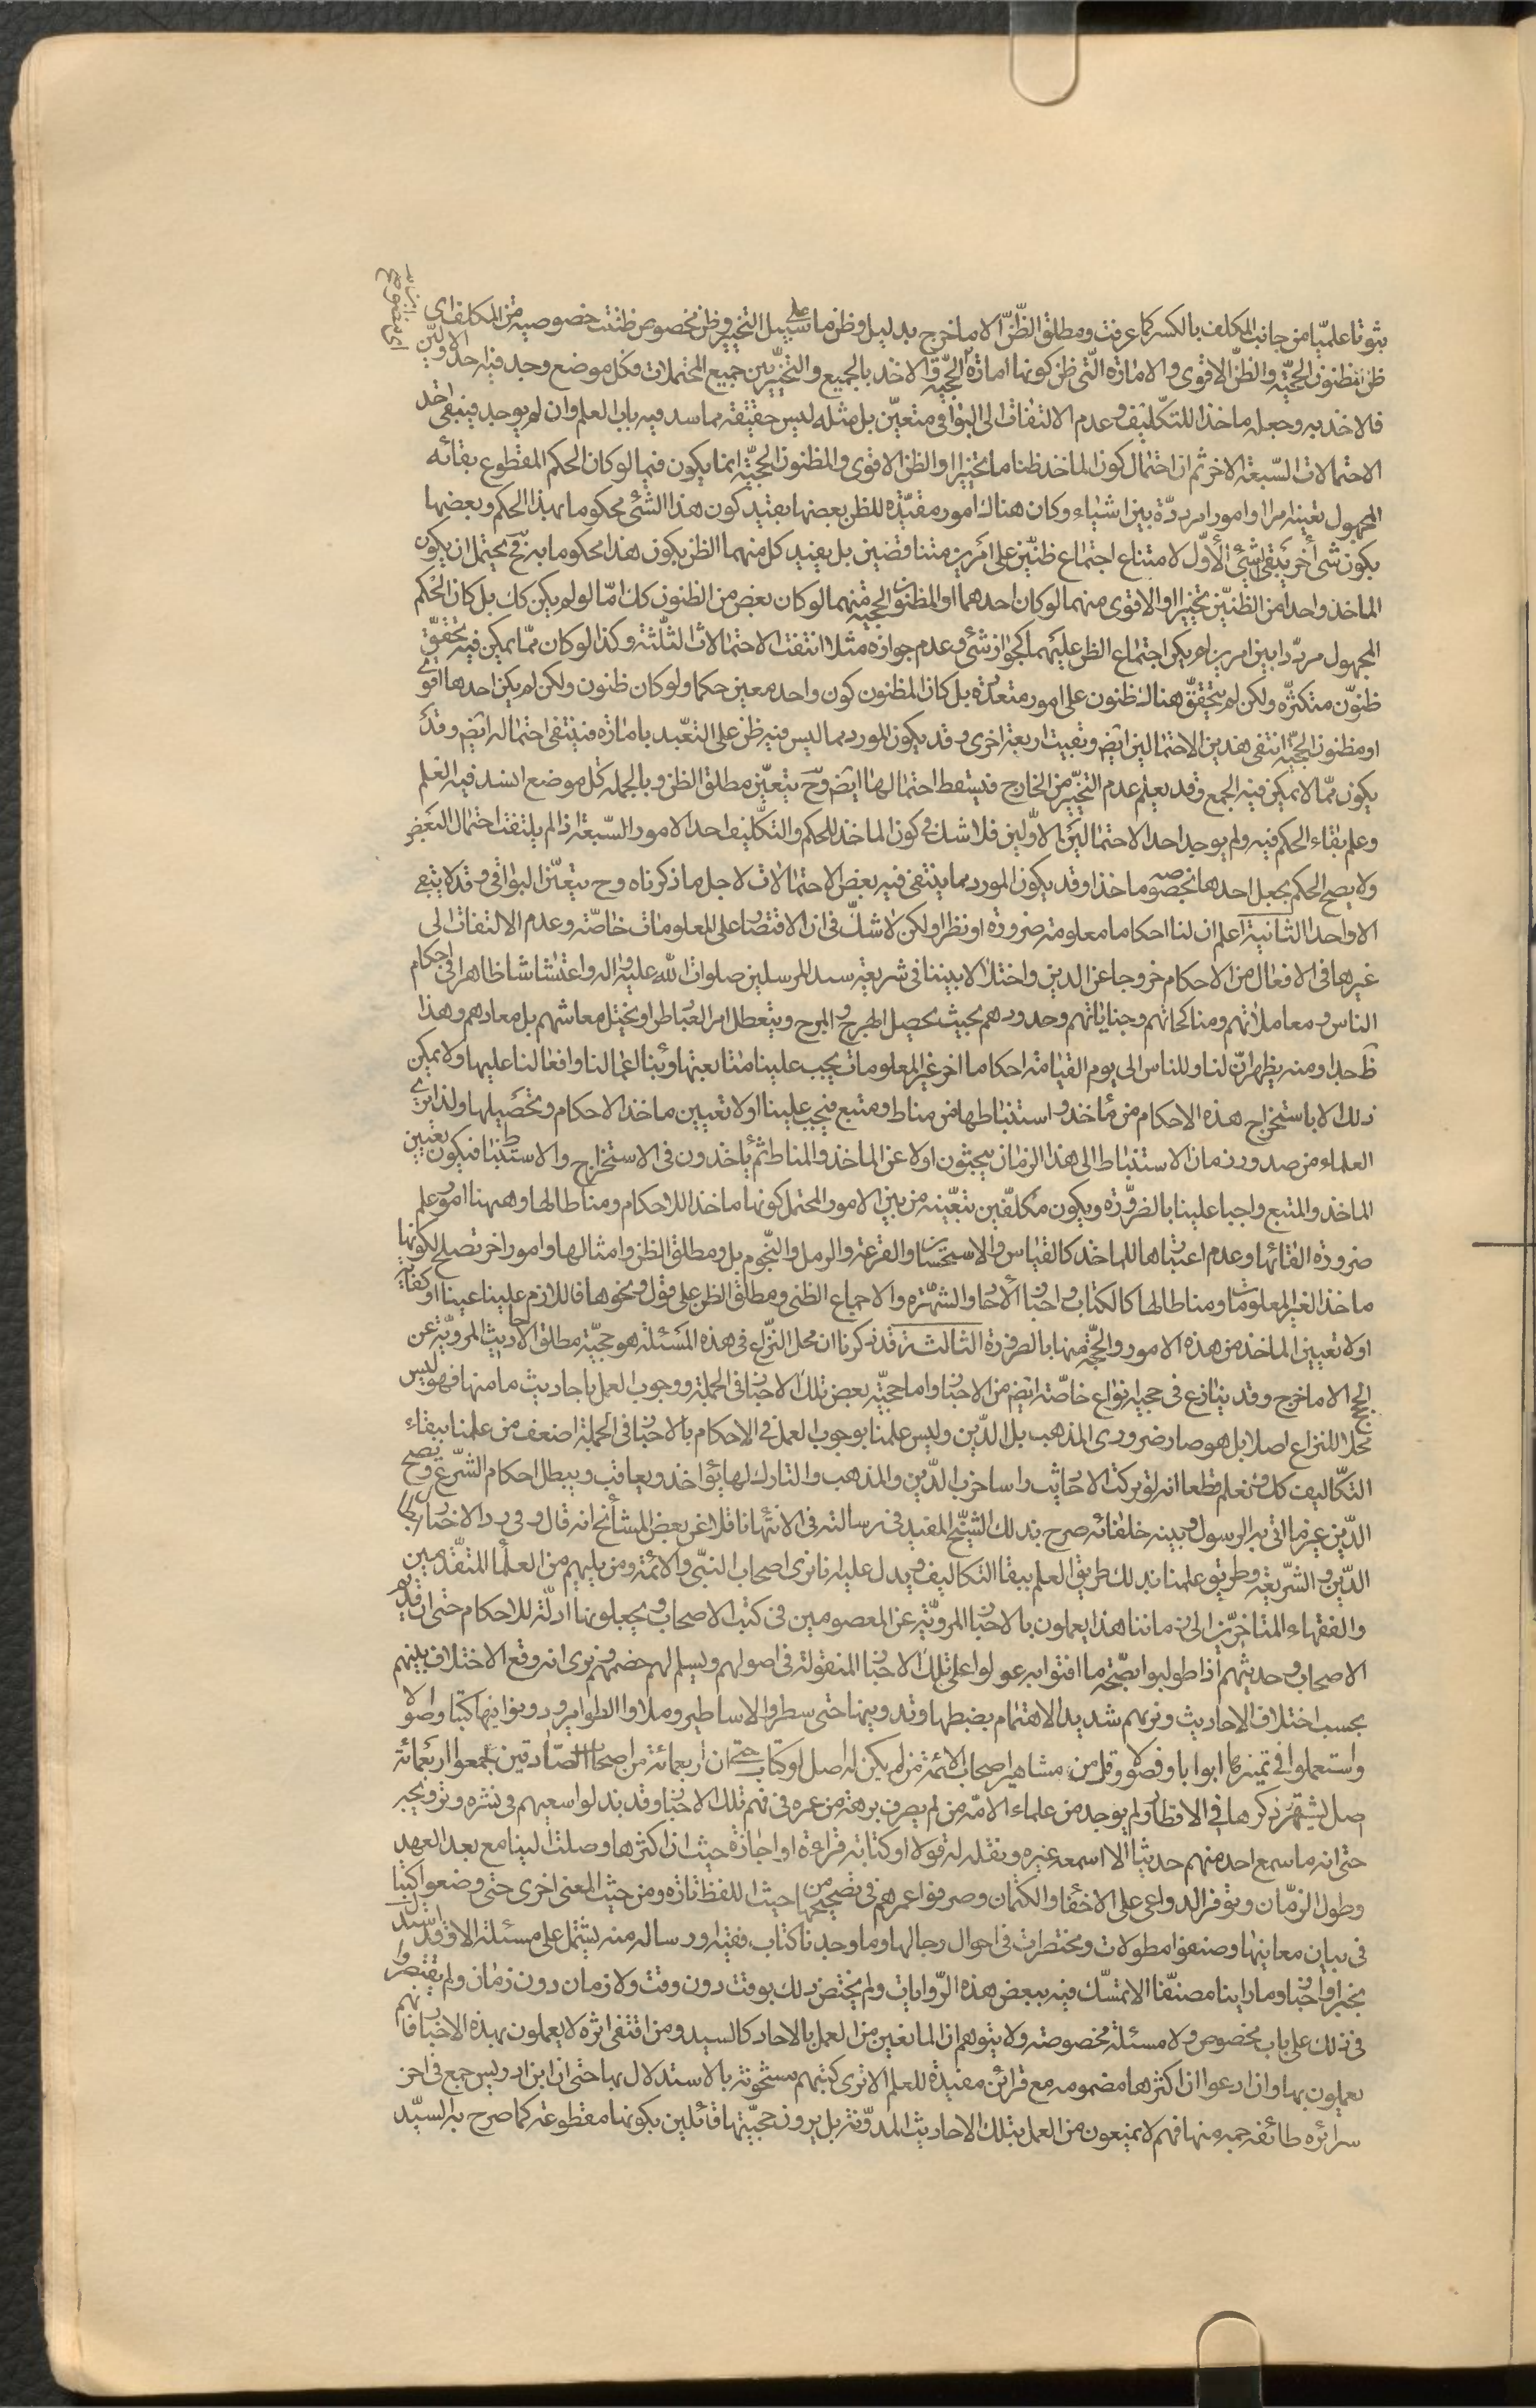 ثبوتا علميّا من جانب المكلف بالكسر كما عرفت ومطلق الظّنّ الا ما خرج بدليل وظن ما على سبيل التخيير وظن مخصوص ظننت خصوصيته من المكلف اى
ظن مظنون الحجيّة والظنّ الاقوى والامارة الّتى ظن كونها امارة والحجيّة والاخذ بالجميع والتخيير بين جميع المحتملات وكل موضع وجد فيه احد الاولين
فالاخذ به وجعله ماخذا للتكليف وعدم الالتفات الى البواقى متعيّن بل مثله ليس حقيقة مما سد فيه باب العلم وان لم يوجد فينبغى اخذ
الاحتمالات السّبعة الاخر ثم ان احتمال كون الماخذ ظنا ما تخييرا والظن الاقوى والمظنون الحجيّة انما يكون فيما لو كان الحكم المقطوع بقائه
المجهول تعيينه مرا وامور امرددّة بين اشياء وكان هناك امور مفيدة للظن بعضها يفيد كون هذا الشئ محكوما بهذا الحكم وبعضها
يكون شئ آخر يبقى الشئ الأوّل لامتناع اجتماع ظنّين على امرين متناقضين بل يفيد كل منهما الظن بكون هذا محكوما به فح يحتمل ان يكون
الماخذ واحدا من الظنيّن تخييرا والاقوى منهما لو كان احدهما او المظنون الحجية منهما لو كان بعض من الظنون كك امّا لو لم يكن كك بل كان الحكم
المجهول مردّدا بين امرين لم يكن اجتماع الظن عليهما كجواز شئ وعدم جوازه مثلا انتفت الاحتمالات الثلّثة وكذا لو كان ممّا يمكن فيه تحقق
ظنون متكثرة ولكن لم يتحقق هناك ظنون على امور متعددة بل كان المظنون كون واحد معين حكما ولو كان ظنون ولكن لم يكن احدها اقوى
او مظنون الحجيّة انتفى هذين الاحتمالين ايضا وبقيت اربعة اخرى وقد يكون المورد مما ليس فيه ظن على التعبّد بامارة فينتفى احتماله ايضا وقد
يكون ممّا لا يمكن فيه الجمع وقد يعلم عدم التخيّر من الخارج فيسقط احتمالها ايضا وح يتعيّن مطلق الظن وبالجملة كل موضع انسد فيه العلم
وعلم بقاء الحكم فيه ولم يوجد احد الاحتمالين الاوّلين فلا شك فى كون الماخذ للحكم والتكليف احد الامور السّبعة اذا لم يلتفت احتمال البعض
ولا يصح الحكم بجعل احدها بخصوصه ماخذا وقد يكون المورد مما ينتفى فيه بعض الاحتمالات لاجل ما ذكرناه وح يتعيّن البواقى وقد لا يبقى
الا واحد الثانية اعلم ان لنا احكاما معلومة ضرورة او نظرا ولكن لا شكّ فى ان الاقتصار على المعلومات خاصّة وعدم الالتفات الى
غيرها فى الافعال من الاحكام خروجا عن الدين واختلالا بيننا فى شريعة سيد المرسلين صلوات الله عليه وآله واغتشاشا ظاهرا فى احكام
الناس ومعاملاتهم ومناكحاتهم وجناياتهم وحدودهم بحيث يحصل الهرج والمرج ويتعطل امر العباد او يختل معاشهم بل معادهم وهذا
ظ جدا ومنه يظهر انّ لنا وللناس الى يوم القيامة احكاما اخر غير المعلومات يجب علينا متابعتها وبناء اعمالنا وافعالنا عليها ولا يمكن
ذلك الا باستخراج هذه الاحكام من مأخذ واستنباطها من مناط ومتبع فيجب علينا اولا تعيين ماخذ الاحكام وتحصيلها ولذا نرى
العلماء من صدور زمان الاستنباط الى هذا الزمان يبحثون اولا عن الماخذ والمناط ثم ياخذون فى الاستخراج والاستنباط فيكون تعيين
الماخذ والمتبع واجبا علينا بالضرورة ويكون مكلّفين بتعيّنه من بين الامور المحتمل كونها ماخذ الاحكام ومناطا لها وههنا امور علم
ضرورة القائها وعدم اعتبارها للماخذ كالقياس والاستحسان والقرعة والرمل والنّجوم بل ومطلق الظن وامثالها وامور اخر تصلح لكونها
ماخذا لغير المعلومات ومناطا لها كالكتاب واخبار الآحاد والشهرة والاجماع الظنى ومطلق الظن على قول ونحوها فاللازم علينا عينا او كفاية
اولا تعيين الماخذ من هذه الامور والحجّة منها بالضرورة الثالثة قد ذكرنا ان محل النّزاع فى هذه المسئلة هو حجيّة مطلق الاحاديث المرويّة عن
الحجج الا ما خرج وقد ينازع فى حجية انواع خاصّة ايضا من الاخبار واما حجيّة بعض تلك الاخبار فى الجملة ووجوب العمل باحاديث ما منها فهو ليس
محلا للنزاع اصلا بل هو صار ضرورى المذهب بل الدّين وليس علمنا بوجوب العمل فى الاحكام بالاخبار فى الجملة اضعف من علمنا ببقاء
التكاليف كل من نعلم قطعا انه لو تركت الاحاديث راسا خرب الدّين والمذهب والتارك لها يؤاخذ ويعاقب ويبطل احكام الشرع ويصح
الدّين غير ما اتى به الرسول وبينه خلفائه صرح بذلك الشيّخ المفيد فى رسالته فى الانتها ناقلا عن بعض المشائخ انه قال وفى رد الاخبار
الدّين والشريعة وطريق علمنا بذلك طريق العلم ببقاء التكاليف ويدل عليه انا نرى اصحاب النبّى والائمة ومن يليهم من العلماء المتقدّمين
والفقهاء المتاخرّين الى زماننا هذا يعملون بالاخبار المرويّة عن المعصومين فى كتب الاصحاب ويجعلونها ادلّة للاحكام حتى ان قديم
الاصحاب وحديثهم اذا طولبوا بصّحة ما افتوا به عولوا على تلك الاخبار المنقولة فى اصولهم ويسلم لهم خصمهم ونرى انه وقع الاختلاف بينهم
بحسب اختلاف الاحاديث ونريهم شديد الاهتمام بضبطها وتدوينها حتى سطروا الاساطير وملاوا الطوامير ودونوا فيها كتبا واصولا
واستعملوا فى تميزها ابوابا وفصولا وقل من مشاهير اصحاب الائمة من لم يكن له اصل او كتاب حتى ان اربعمائة من اصحاب الصّادقين جمعوا اربعمائة
اصل يشتهر ذكرها فى الاقطار ولم يوجد من علماء الامّة من لم يصرف برهة من عمره فى فهم تلك الاخبار وقد بذلوا سعيهم فى نشره وترويجه
حتى انه ما سمع احد منهم حديثا الا اسمعه غيره ونقله له قولا او كتابة قراءة او اجازة حيث ان اكثرها وصلت الينا مع بعد العهد
وطول الزمّان وتوفر الدواعى على الاخفاء والكتمان وصرفوا عمرهم فى تصحيحها من حيث اللفظ تارة ومن حيث المعنى اخرى حتى وضعوا كتبا
فى بيان معانيها وصنفوا مطولات ومختصرات فى احوال رجالها وما وجدنا كتاب فقيه ورسالة منه يشتمل على مسئلة الا وقد استدل
بخبر او اخبار وما راينا مصنّفا الا تمسّك فيه ببعض هذه الرّوايات ولم يختص ذلك بوقت دون وقت ولا زمان دون زمان ولم يقتصروا
فى ذلك على باب مخصوص ولا مسئلة مخصوصة ولا يتوهم ان المانعين من العمل بالاحاد كالسيد ومن اقتفى اثره لا يعملون بهذه الاخبار فانهم
يعملون بها وان ادعوا ان اكثرها مضمومه مع قرائن مفيدة للعلم الا ترى كتبهم مشحونة بالاستدلال بها حتى ان ابن ادريس جمع فى اخر
سرائره طائفة جمة منها فهم لا يمنعون من العمل بتلك الاحاديث المدوّنة بل يرون حجيّتها قائلين بكونها مقطوعة كما صرح به السيّد